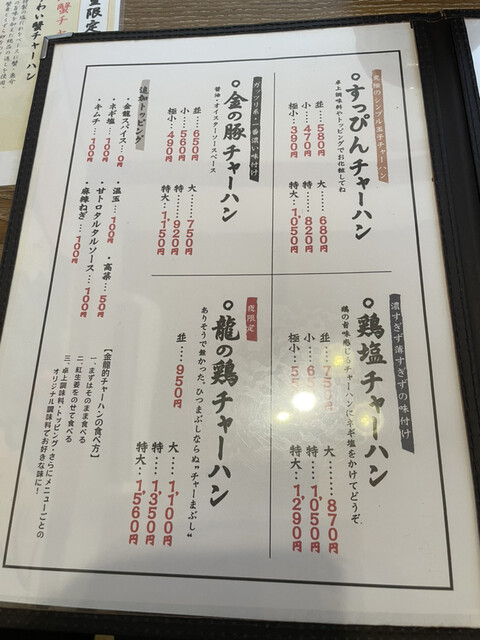 究極のシンプル玉子チャーハン
すっぴんチャーハン
卓上調味料やトッピングでお化粧してね
並……580円
小……470円
極小…390円
大……680円
特……820円
特大…1,050円
濃すぎず薄すぎずの味付け
鶏塩チャーハン
鶏の旨味感じるチャーハンにネギ塩をかけてどうぞ。
並……750円
小……
極小…
大……870円
特……1,050円
特大…1,290円
ガッツリ系・一番濃い味付け
金の豚チャーハン
醤油・オイスターソースベース
並……650円
小……560円
極小…490円
大……750円
特……920円
特大…1,150円
夜限定
龍の鶏チャーハン
ありそうで無かった、ひつまぶしならぬ“チャーまぶし”
並……950円
大……1,100円
特……1,350円
特大…1,560円
追加トッピング
・金龍スパイス…0円
・ネギ塩…100円
・キムチ…100円
・温玉…100円
・高菜…50円
・甘トロタルタルソース…100円
・麻辣ねぎ…100円
【金龍的チャーハンの食べ方】
一、まずはそのまま食べる
二、紅生姜をのせて食べる
三、卓上調味料・トッピング・さらにメニューごとの
オリジナル調味料でお好きな味に！
量限定
蟹チャーハン